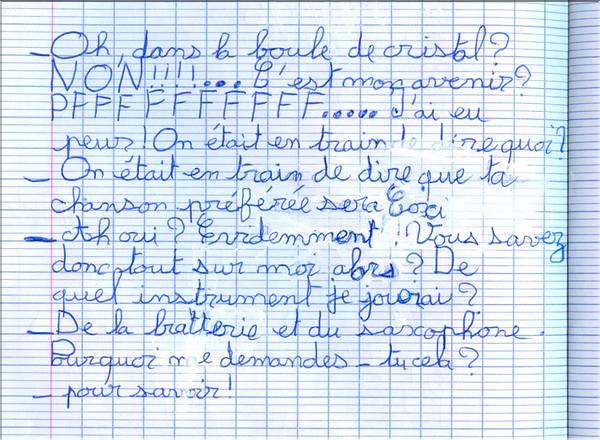 _ Oh, dans la boule de cristal ?
NON !!!!... C'est mon avenir ?
PFFFFFFFFFF..... J'ai eu
peur ! On était en train de dire quoi ?
_ On était en train de dire que ta
chanson préférée sera
_ Ah oui ? Evidemment ! Vous savez
donc tout sur moi alors ? De
quel instrument je jouerai ?
_ De la batterie et du saxophone.
Pourquoi me demandes-tu cela ?
_ pour savoir !